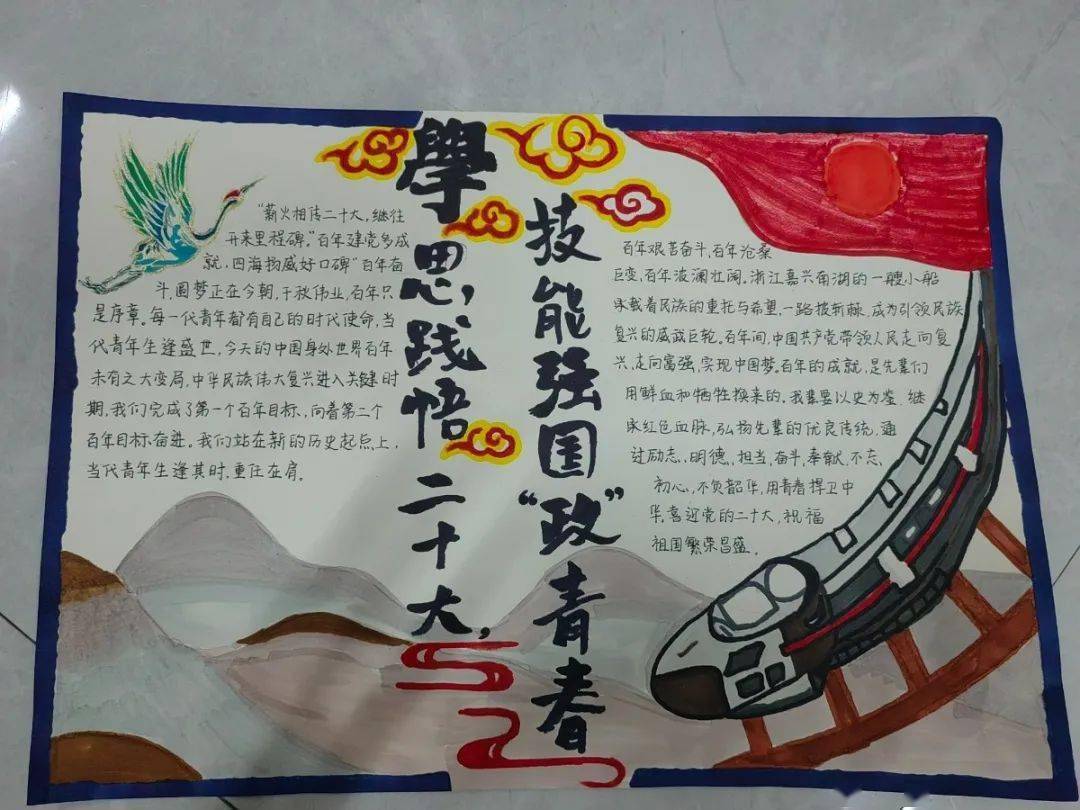 學思,践悟二十大,
技能强国“政”青春
“薪火相传二十大,继往
开来里程碑。”百年建党多成
就,四海扬威好口碑“百年奋
斗,圆梦正在今朝,千秋伟业,百年只
是序章。每一代青年都有自己的时代使命,当
代青年生逢盛世,今天的中国身处世界百年
未有之大变局,中华民族伟大复兴进入关键时
期,我们完成了第一个百年目标,向着第二个
百年目标奋进。我们站在新的历史起点上,
当代青年生逢其时,重任在肩。
百年艰苦奋斗,百年沧桑
巨变,百年波澜壮阔。浙江嘉兴南湖的一艘小船
承载着民族的重托与希望,一路披荆棘,成为引领民族
复兴的威武巨轮。百年间,中国共产党带领人民走向复
兴,走向富强,实现中国梦。百年的成就,是先辈们
用鲜血和牺牲换来的。我辈要以史为鉴,继
承红色血脉,弘扬先辈的优良传统,通
过励志、明德、担当、奋斗、奉献、不忘
初心,不负韶华,用青春捍卫中
华,喜迎党的二十大,祝福
祖国繁荣昌盛。